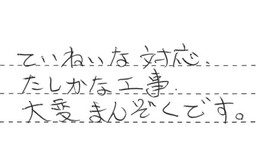 ていねいな対応.
たしかな工事.
大変まんぞくです。